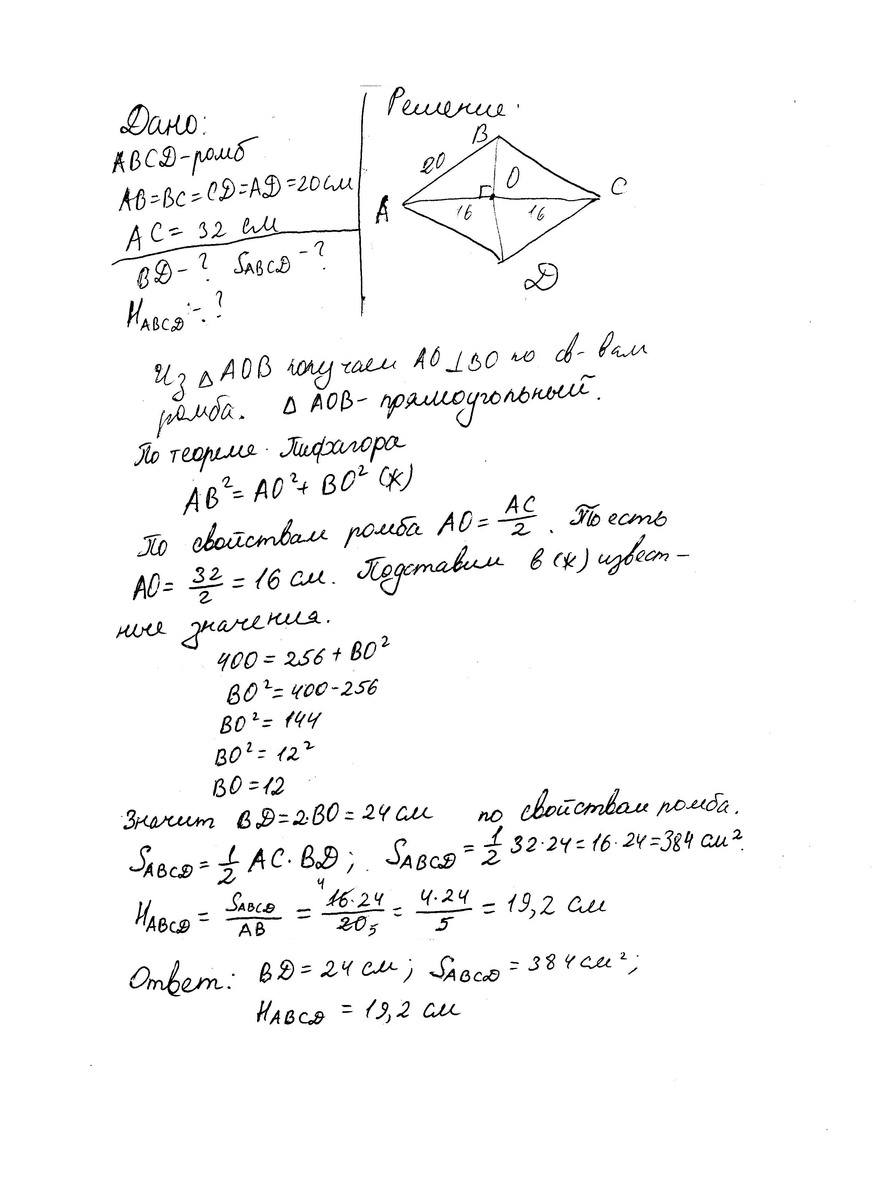 Дано:
ABCD-ромб
AB=BC=CD=AD=20см
AC= 32 см
BD-? SABCD-?
HABCD-?
Решение.
B
20
O
C
A
16
16
D
Из △AOB получаем AO⊥BO по св-вам
ромба. △ AOB- прямоугольный.
По теореме Пифагора
AB²= AO²+ BO² (*)
По свойствам ромба AO= AC/2. То есть
AO= 32/2 = 16 см. Подставим в (*) извест-
ные значения.
400=256+BO²
BO²=400-256
BO²= 144
BO²= 12²
BO=12
Значит BD=2·BO=24 см по свойствам ромба.
SABCD= 1/2 AC·BD; SABCD= 1/2 32·24=16·24=384 см².
HABCD = SABCD/AB = 4 16·24/20 5 = 4·24/5 = 19,2 см
Ответ: BD=24 см; SABCD=384см²;
HABCD = 19,2 см